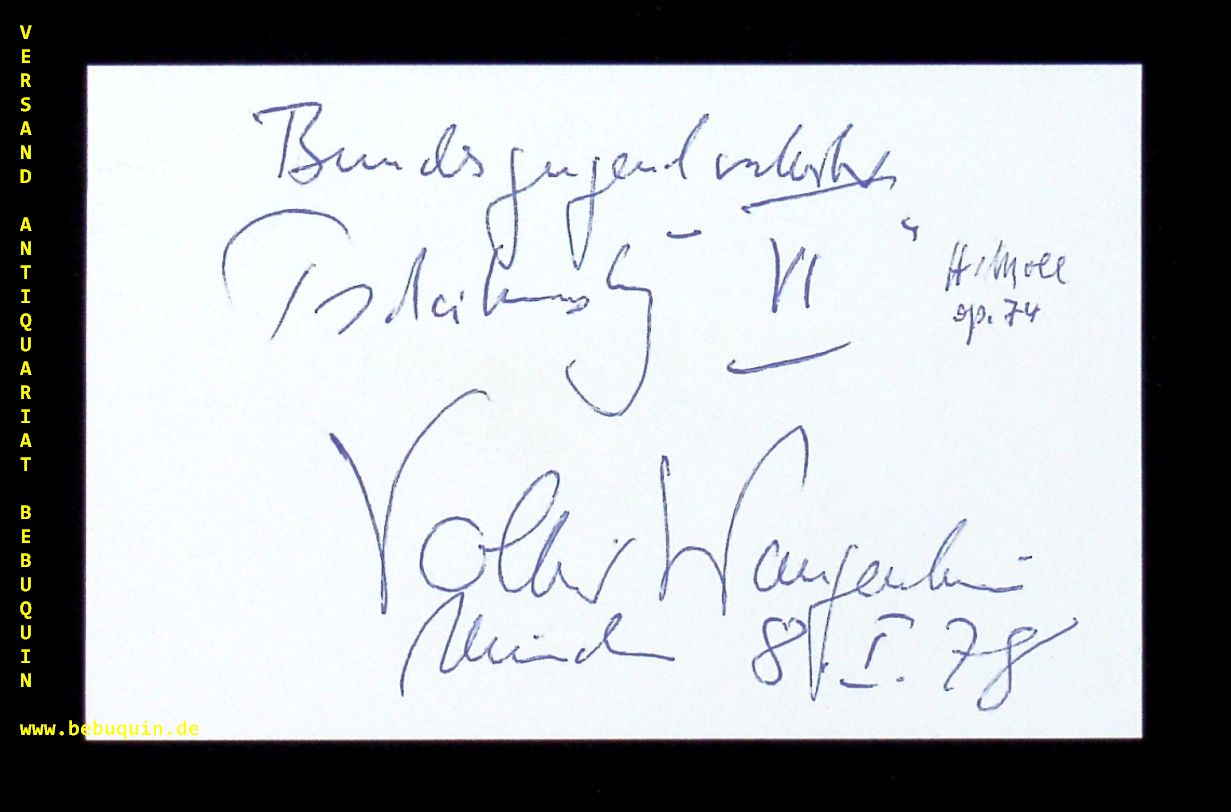 VERSAND ANTIQUARIAT BEBUQUIN
Bundesjugendorchester
Tschaikowsky VI
H-Moll
op. 74
Volker Wangenheim
München 8. I. 78
www.bebuquin.de